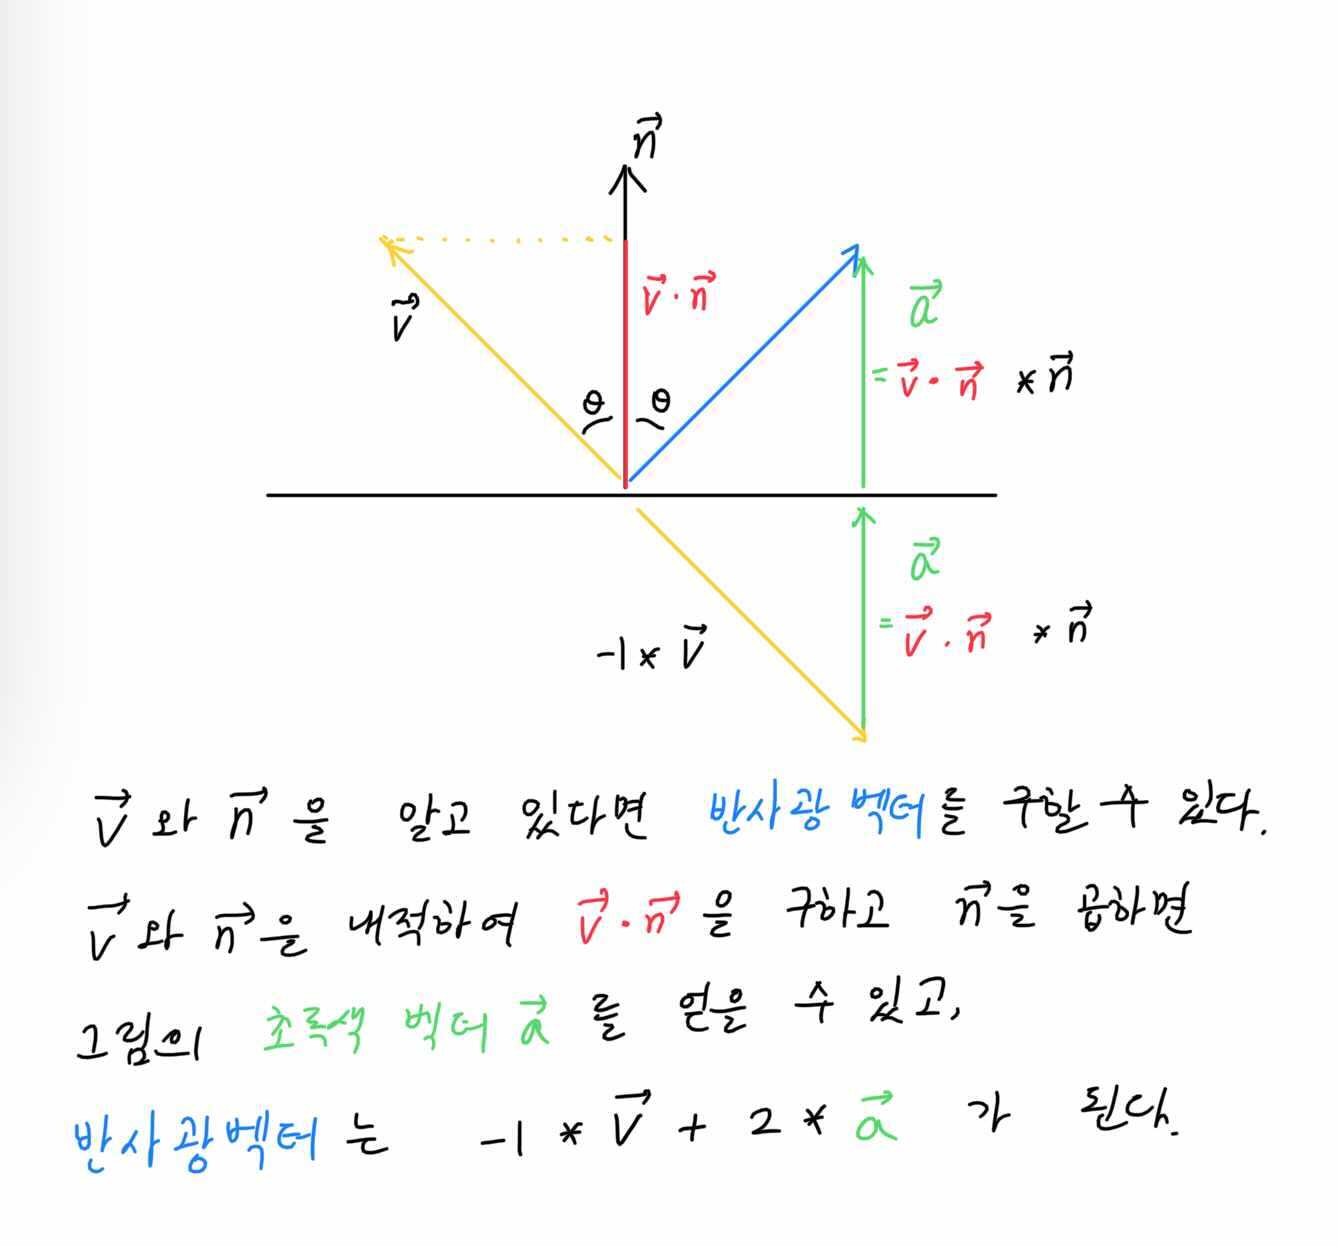 n⃗
v⃗ · n⃗
v⃗
a⃗
= v⃗ · n⃗ * n⃗
θ θ
a⃗
= v⃗ · n⃗ * n⃗
-1 * v⃗
v⃗ 와 n⃗ 을 알고 있다면 반사광 벡터를 구할 수 있다.
v⃗ 와 n⃗ 을 내적하여 v⃗ · n⃗ 을 구하고 n⃗을 곱하면
그림의 초록색 벡터 a⃗ 를 얻을 수 있고,
반사광벡터는 -1 * v⃗ + 2 * a⃗ 가 된다.